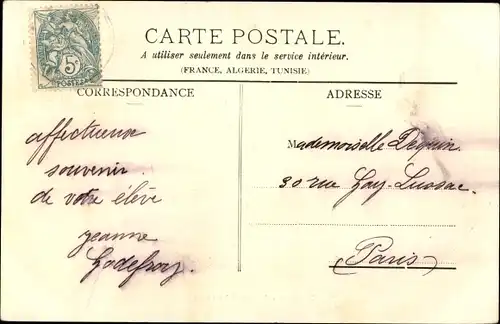 CARTE POSTALE.
A utiliser seulement dans le service intérieur.
(FRANCE, ALGERIE, TUNISIE)
5c
POSTES
CORRESPONDANCE
affectueux
souvenir
de votre élève
Jeanne
Godefroy
ADRESSE
Mademoiselle Dequin
30 rue Gay-Lussac
Paris